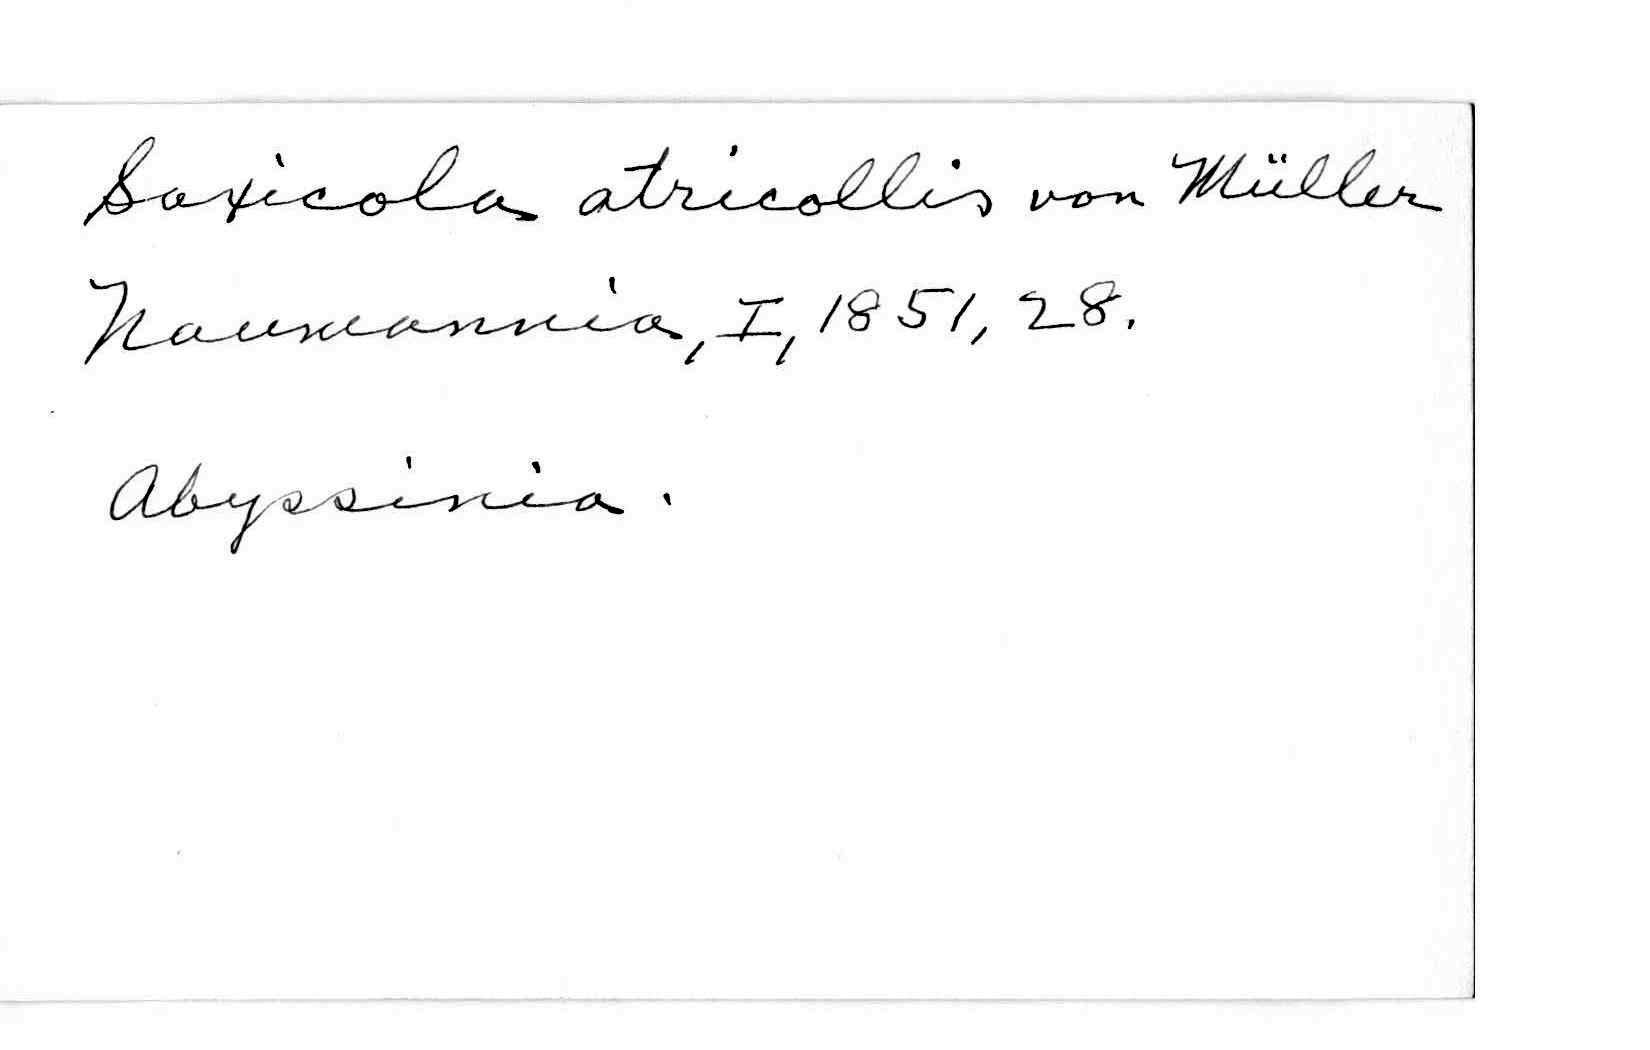 Saxicola atricollis von Müller
Naumannia, I, 1851, 28.
Abyssinia.